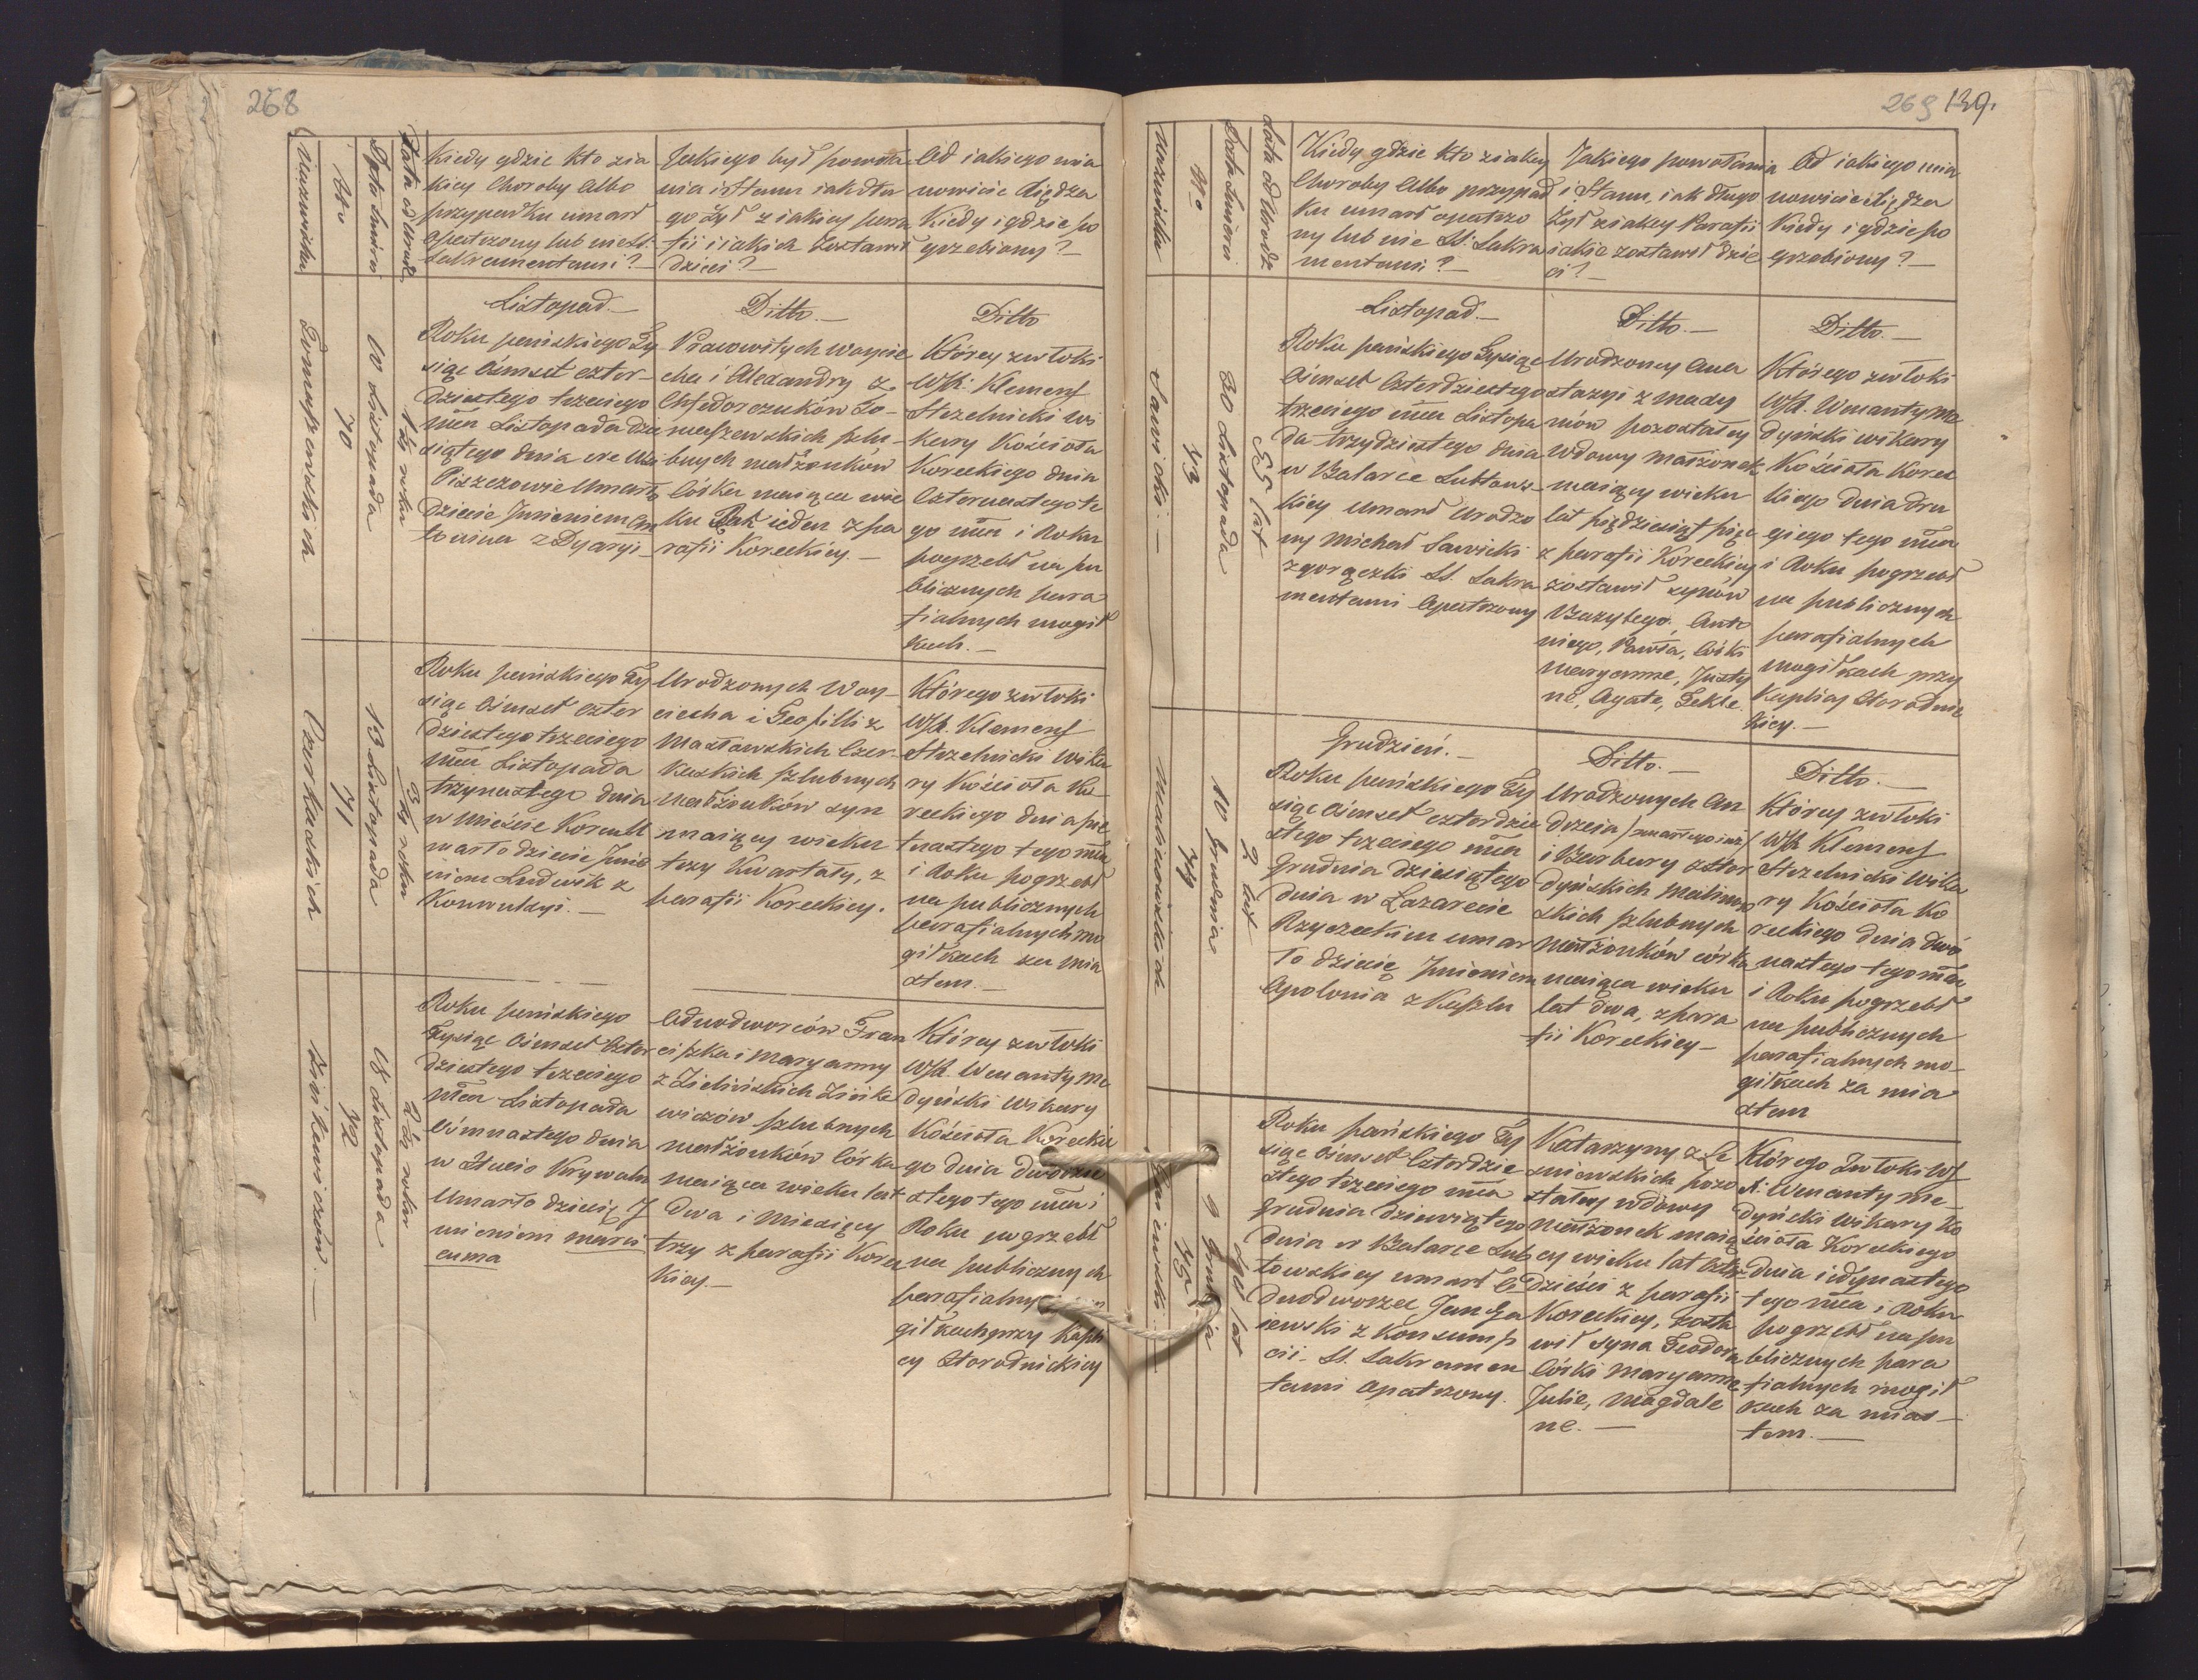 268
Nazwisko
Nro
Data śmierci
Lata od Urodz
Kiedy gdzie kto zia
kiey Choroby Albo
przypadku umarł
opatrzony lub nie SS.
Sakramentami?—
Jakiego był powoła
nia i Stanu iak dłu
go Żył z iakiey para
fii i iakich Zostawił
dzieci?—
Od iakiego mia
nowicie Xiędza
Kiedy i gdzie po
grzebiony?—
Tomaszewskich
70
10 Listopada
1 roku
Listopad.—
Roku pańskiego Ty
siąc Ośmset czter-
dziestego trzeciego
mca Listopada dzie
siątego dnia we Wsi
Piszczowie Umarło
dziecie Jmieniem An
tonina z Dyaryi—
Ditto.—
Prawowitych Woycie
cha i Alexandry z
Chfedorczuków To-
maszewskich szlu-
bnych małżonków
Córka maiąca wie
ku Rok ieden z pa
rafii Koreckiey.—
Ditto
Którey zwłoki
WJX: Klemens
Strzelnicki Wi
kary Kościoła
Koreckiego dnia
Czternastego te
go mca i Roku
pogrzebł na pu
blicznych para
fialnych mogił
kach.—
Czerkaskich
71
13 Listopada
roku
Roku pańskiego Ty
siąc Ośmset czter
dziestego trzeciego
mca Listopada
trzynastego dnia
w Mieście Korcu U
marło dziecie Jmie
niem Ludwik z
Konwulsyi.—
Urodzonych Woy-
ciecha i Teofilli z
Masłowskich Czer-
kaskich szlubnych
małżonków syn
maiący wieku
trzy Kwartały, z
parafii Koreckiey.
Którego zwłoki
WJX. Klemens
Strzelnicki Wika
ry Kościoła Ko-
reckiego dnia pię
tnastego tego mca
i Roku pogrzebł
na publicznych
parafialnych mo
giłkach za mia
stem.—
Zinkiewiczów.—
72
18 Listopada
2 roku
Roku pańskiego
Tysiąc Ośmset Czter
dziestego trzeciego
mca Listopada
Ośmnastego dnia
w Hucie Krywaln
Umarło dziecię J
mieniem Marci
anna
Odnodworców Fran
ciszka i Maryanny
z Zielińskich Zinke
wiczów szlubnych
małżonków Córka
maiąca wieku lat
Dwa i Miesięcy
trzy z parafii Korec
kiey—
Którey zwłoki
WJX. Wenanty Me
dyński Wikary
Kościoła Koreckie
go dnia dwudzie
stego tego mca i
Roku pogrzebł
na publicznych
parafialnych mo
giłkach przy Kapli
cy Storodnickiey
269 139.
Nazwisko
Nro
Data śmierci
Lata od Urodz
Kiedy gdzie kto z iakiey
Choroby Albo przypad
ku umarł opatrzo
ny lub nie SS. Sakra
mentami?—
Jakiego powołania
i Stanu, iak długo
Żył z iakiey Parafii
iakie zostawił dzie
ci?—
Od iakiego mia
nowicie Xiędza
Kiedy i gdzie po
grzebiony?—
Sawicki.—
73
30 Listopada
55 lat
Listopad.—
Roku pańskiego Tysiąc
Ośmset Czterdziestego
trzeciego mca Listopa
da trzydziestego dnia
w Balarce Lubtow-
kiey Umarł Urodzo
ny Michał Sawicki
z gorączki SS. Sakra
mentami Opatrzony
Ditto.—
Urodzoney Ana
stazyi z Mady
mów pozostałey
Wdowy Małżonek
maiący wieku
lat pięćdziesiąt pięć
z parafii Koreckiey
zostawił synów
Bazylego, Anto
niego, Pawła, Córki
Maryanne, Justy
nę, Agate, Tekle.
Ditto.—
Którego zwłoki
WJX. Wenanty Me
dyński wikary
Kościoła Korec
kiego dnia dru
giego tego mca
i Roku pogrzebł
na publicznych
parafialnych
mogiłkach przy
Kaplicy Storodnic
kiey.—
Malinowskich
74
10 Grudnia
2 lat
Grudzień.—
Roku pańskiego Ty
siąc Ośmset czterdzie
stego trzeciego mca
Grudnia dziesiątego
dnia w Lazarecie
Rzyczeckim umar
ło dziecię Jmieniem
Apolonia z Kaszlu
Ditto.—
Urodzonych An
drzeia /zmarłego iuż/
i Barbary z Stor
dyńskich Malinow
skich szlubnych
małżonków córka
maiąca wieku
lat dwa, z para
fii Koreckiey—
Ditto.—
Którey zwłoki
WJX Klemens
Strzelnicki Wika
ry Kościoła Ko
reckiego dnia dwó
nastego tego mca
i Roku pogrzebł
na publicznych
parafialnych mo-
giłkach za mia
stem
75
9 Grudnia
40 lat
Roku pańskiego Ty
siąc Ośmset Czterdzie
stego trzeciego mca
Grudnia dziewiątego
dnia w Balarce Lub
towskiey umarł O
dnodworzec Jan Ga
iewski z Konsump
cii. SS. Sakramen
tami opatrzony.
Katarzyny z Le
śniewskich pozo
stałey wdowy
małżonek maią
cy wieku lat Czter
dzieści z parafii
Koreckiey, zosta
wił syna Teodora
Córki Maryanne
Julie, Magdale
ne.—
Którego Zwłoki WJ
X: Wenanty Me-
dyński Wikary Ko
ścioła Koreckiego
dnia iedynastego
tego mca i Roku
pogrzebł na pu
blicznych para
fialnych mogił
kach za mias-
tem.—